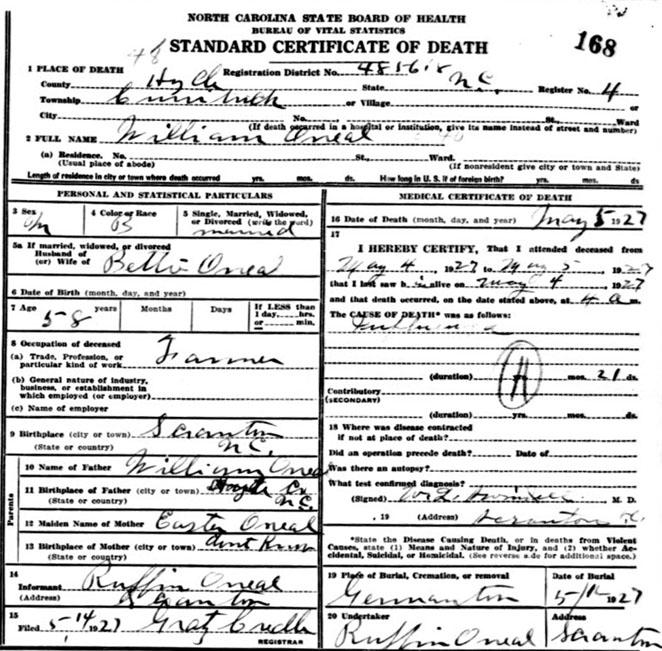 NORTH CAROLINA STATE BOARD OF HEALTH
BUREAU OF VITAL STATISTICS
STANDARD CERTIFICATE OF DEATH
168
1 PLACE OF DEATH Registration District No.
County Hyde State N.C. Register No. 4
Township or Village or
City No. St., Ward
(If death occurred in a hospital or institution, give its name instead of street and number)
2 FULL NAME William Oneal
(a) Residence. No. St., Ward.
(Usual place of abode) (If nonresident give city or town and State)
Length of residence in city or town where death occurred yrs. mos. ds. How long in U. S. if of foreign birth? yrs. mos. ds.
PERSONAL AND STATISTICAL PARTICULARS
3 Sex M 4 Color or Race B 5 Single, Married, Widowed, or Divorced (write the word) married
5a If married, widowed, or divorced
Husband of
(or) Wife of Bettie Oneal
6 Date of Birth (month, day, and year)
7 Age 58 years Months Days If LESS than 1 day, hrs. or min.
8 Occupation of deceased
(a) Trade, Profession, or particular kind of work Farmer
(b) General nature of industry, business, or establishment in which employed (or employer)
(c) Name of employer
9 Birthplace (city or town) Scranton
(State or country) N.C.
Parents
10 Name of Father William Oneal
11 Birthplace of Father (city or town) Hyde Co
(State or country) N.C.
12 Maiden Name of Mother Easter Oneal
13 Birthplace of Mother (city or town) dont Know
(State or country)
14 Informant Ruffin Oneal
(Address) Scranton
15 Filed 5-14 1927 Gratz Credle
REGISTRAR
MEDICAL CERTIFICATE OF DEATH
16 Date of Death (month, day, and year) May 5 1927
17
I HEREBY CERTIFY, That I attended deceased from
May 4, 1927 to May 5, 1927
that I last saw him alive on May 4 1927
and that death occurred, on the date stated above, at 4 a m.
The CAUSE OF DEATH* was as follows:
(duration) yrs. mos. 21 ds.
Contributory
(SECONDARY)
(duration) yrs. mos. ds.
18 Where was disease contracted
if not at place of death?
Did an operation precede death? Date of
Was there an autopsy?
What test confirmed diagnosis?
(Signed) M. D.
, 19 (Address) Scranton
*State the Disease Causing Death, or in deaths from Violent Causes, state (1) Means and Nature of Injury, and (2) whether Accidental, Suicidal, or Homicidal. (See reverse side for additional space.)
19 Place of Burial, Cremation, or removal Date of Burial
Germanton 1927
20 Undertaker
Ruffin Oneal Scranton